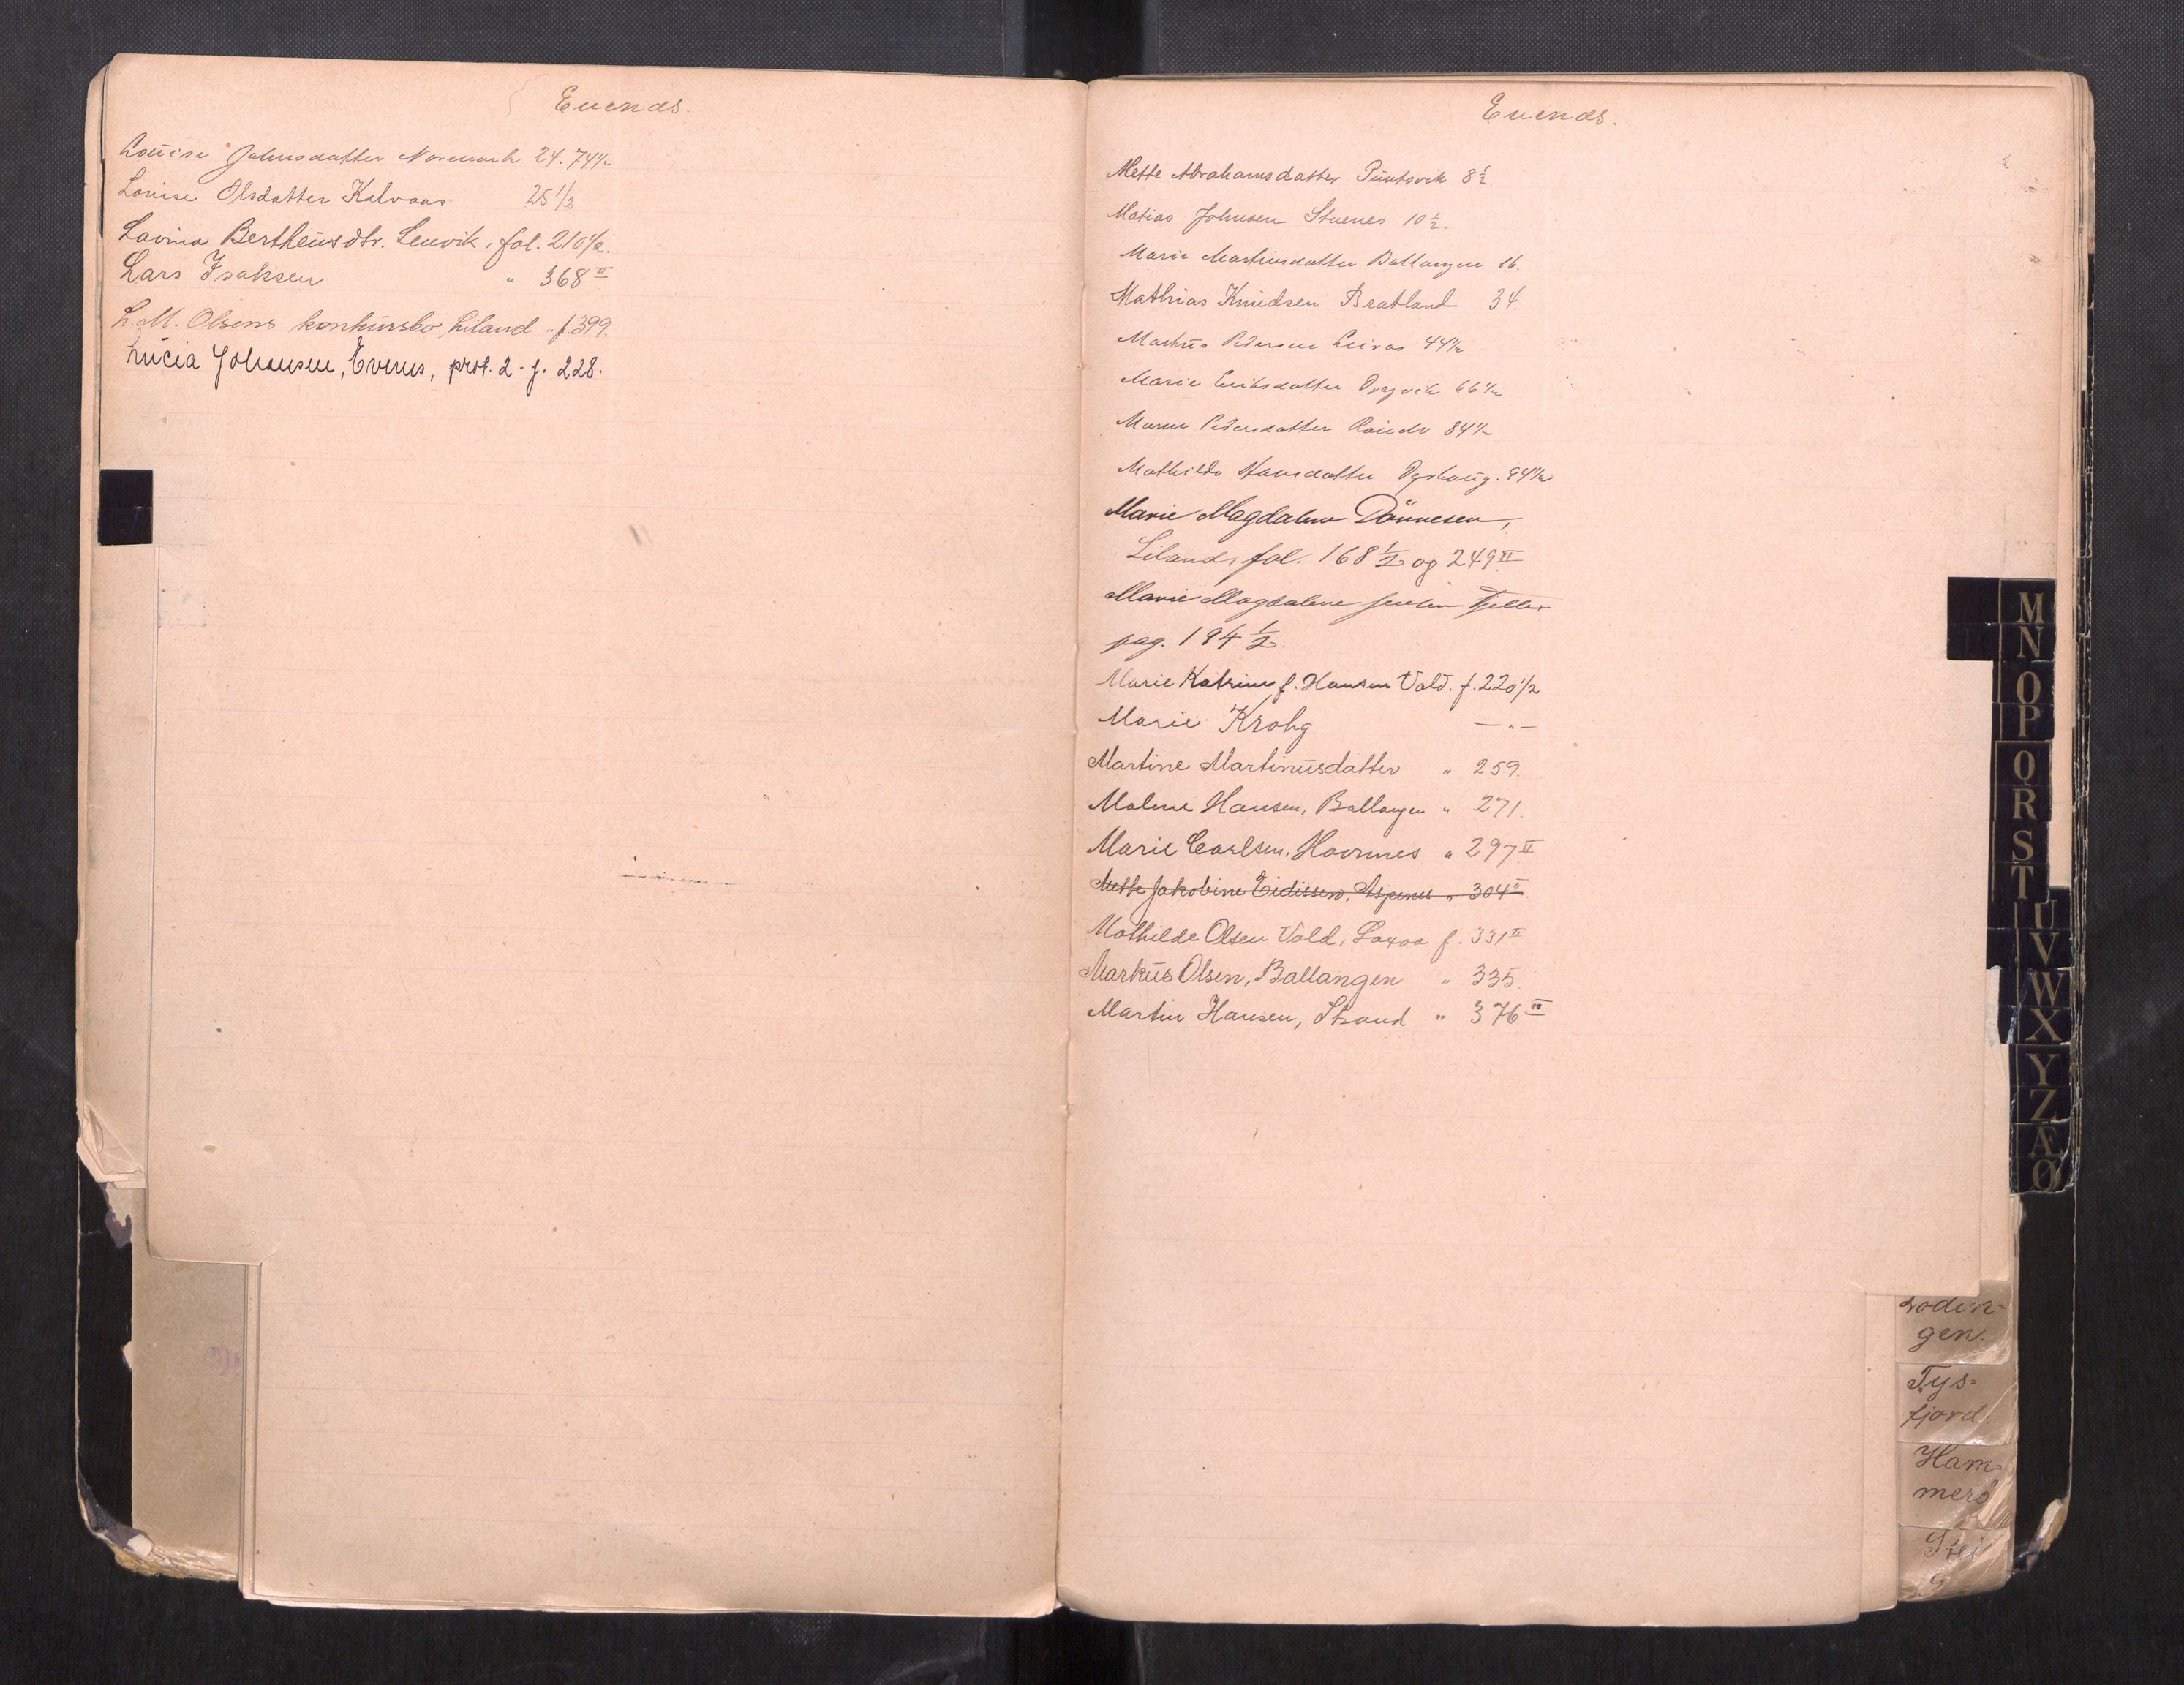 Evenes.
Louise Johnsdatter Normark 24. 74½
Lovise Olsdatter Kalvaas 25 1/2
Lavina Bertheusdtr. Lenvik, fol. 210½.
Lars Isaksen " 368 II
L. M. Olsens konkursbo, Liland " f. 399.
Lucia Johansen, Evenes, prot. 2 - f. 228.
Evenes.
Mette Abrahamsdatter Puntsvik 8½.
Matias Johnsen Stuenes 10½.
Marie Martinsdatter Ballangen 16.
Mathias Knudsen Bratland 34.
Markus Pedersen Leiros 44½
Marie Eriksdatter 66½
Maren Pedersdatter 84½
Mathilde Hansdatter Dyrhaug. 94½
Marie Magdalene Dönnesen,
Liland, fol. 168½ og 249 II
Marie Magdalene
pag. 194½.
Marie Katrine f. Hansen Vold. f. 220½
Marie Krohg — " —
Martine Martinusdatter " 259.
Malene Hansen, Ballangen " 271.
Marie Carlsen, Havnnes " 297 II
Mette Jakobine Eidissen, Aspenes " 304 II
Mathilde Olsen Vold, Laxaa f. 331 II
Markus Olsen, Ballangen " 335.
Martin Hansen, Strand " 376 III
M
N
O
P
Q
R
S
T
U
V
W
X
Y
Z
Æ
Ø
Lødin-
gen.
Tys-
fjord.
Ham-
merö